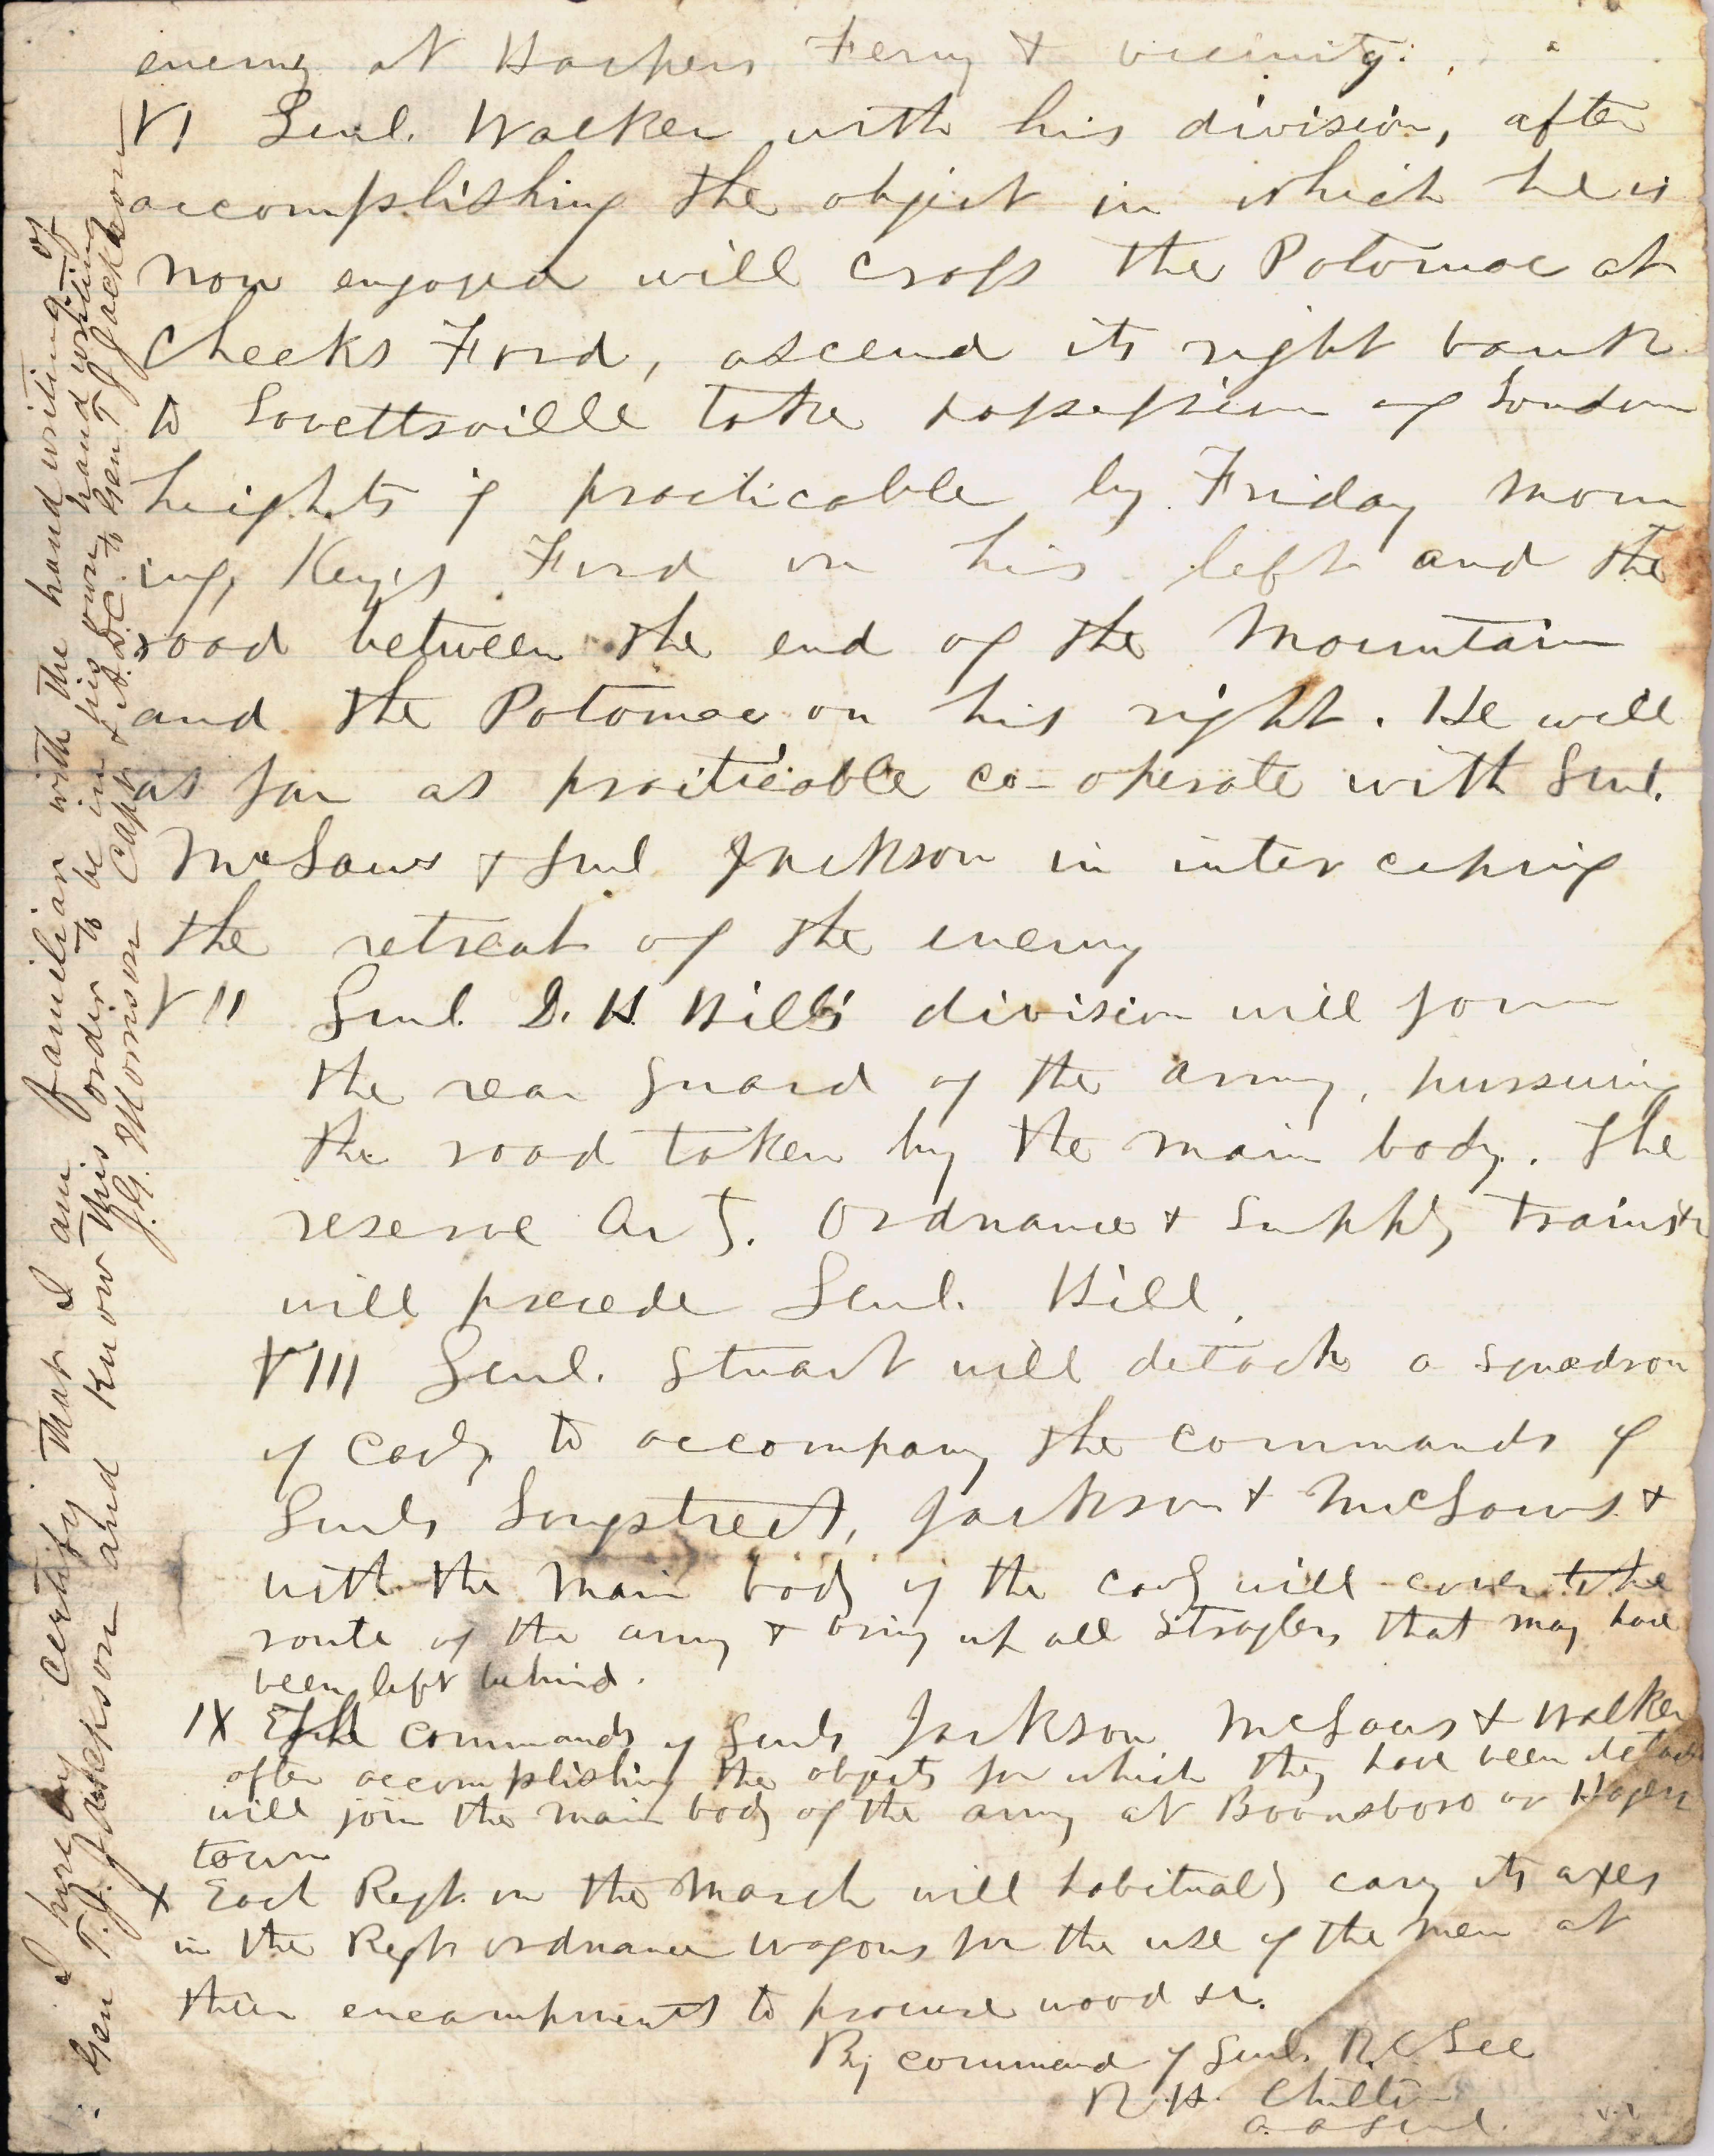 enemy at Harpers Ferry & vicinity.
VI Genl. Walker with his division, after
accomplishing the object in which he is
now engaged will cross the Potomac at
Cheeks Ford, ascend its right bank
to Lovettsville take possession of Loudon
heights if practicable by Friday morn
ing, Keys Ford on his left and the
road between the end of the Mountain
and the Potomac on his right. He will
as far as practicable co-operate with Genl.
McLaws & Genl Jackson in intercepting
the retreat of the enemy
VII Genl. D. H. Hill's division will form
the rear guard of the army, pursuing
the road taken by the main body. The
reserve Arty. Ordnance & Supply trains &c
will precede Genl. Hill.
VIII Genl. Stuart will detach a squadron
of Cavly to accompany the commands of
Genls Longstreet, Jackson & McLaws &
with the main body of the cavy will cover the
route of the army & bring up all straglers that may have
been left behind.
IX The commands of Genls Jackson McLaws & Walker
after accomplishing the objects for which they have been detach
will join the main body of the army at Boonsboro or Hagers
town
X Each Regt. on the march will habitually cary its axes
in the Regts ordnance wagons for the use of the men at
their encampments to procure wood &c.
By command of Genl. R. E Lee
R. H. Chilton
A. A Genl.
I hereby certify that I am familiar with the hand writing of
Gen T. J. Jackson and know this order to be in his own hand writing
J. G. Morrison Capt & A.D.C. to Gen T J Jackson